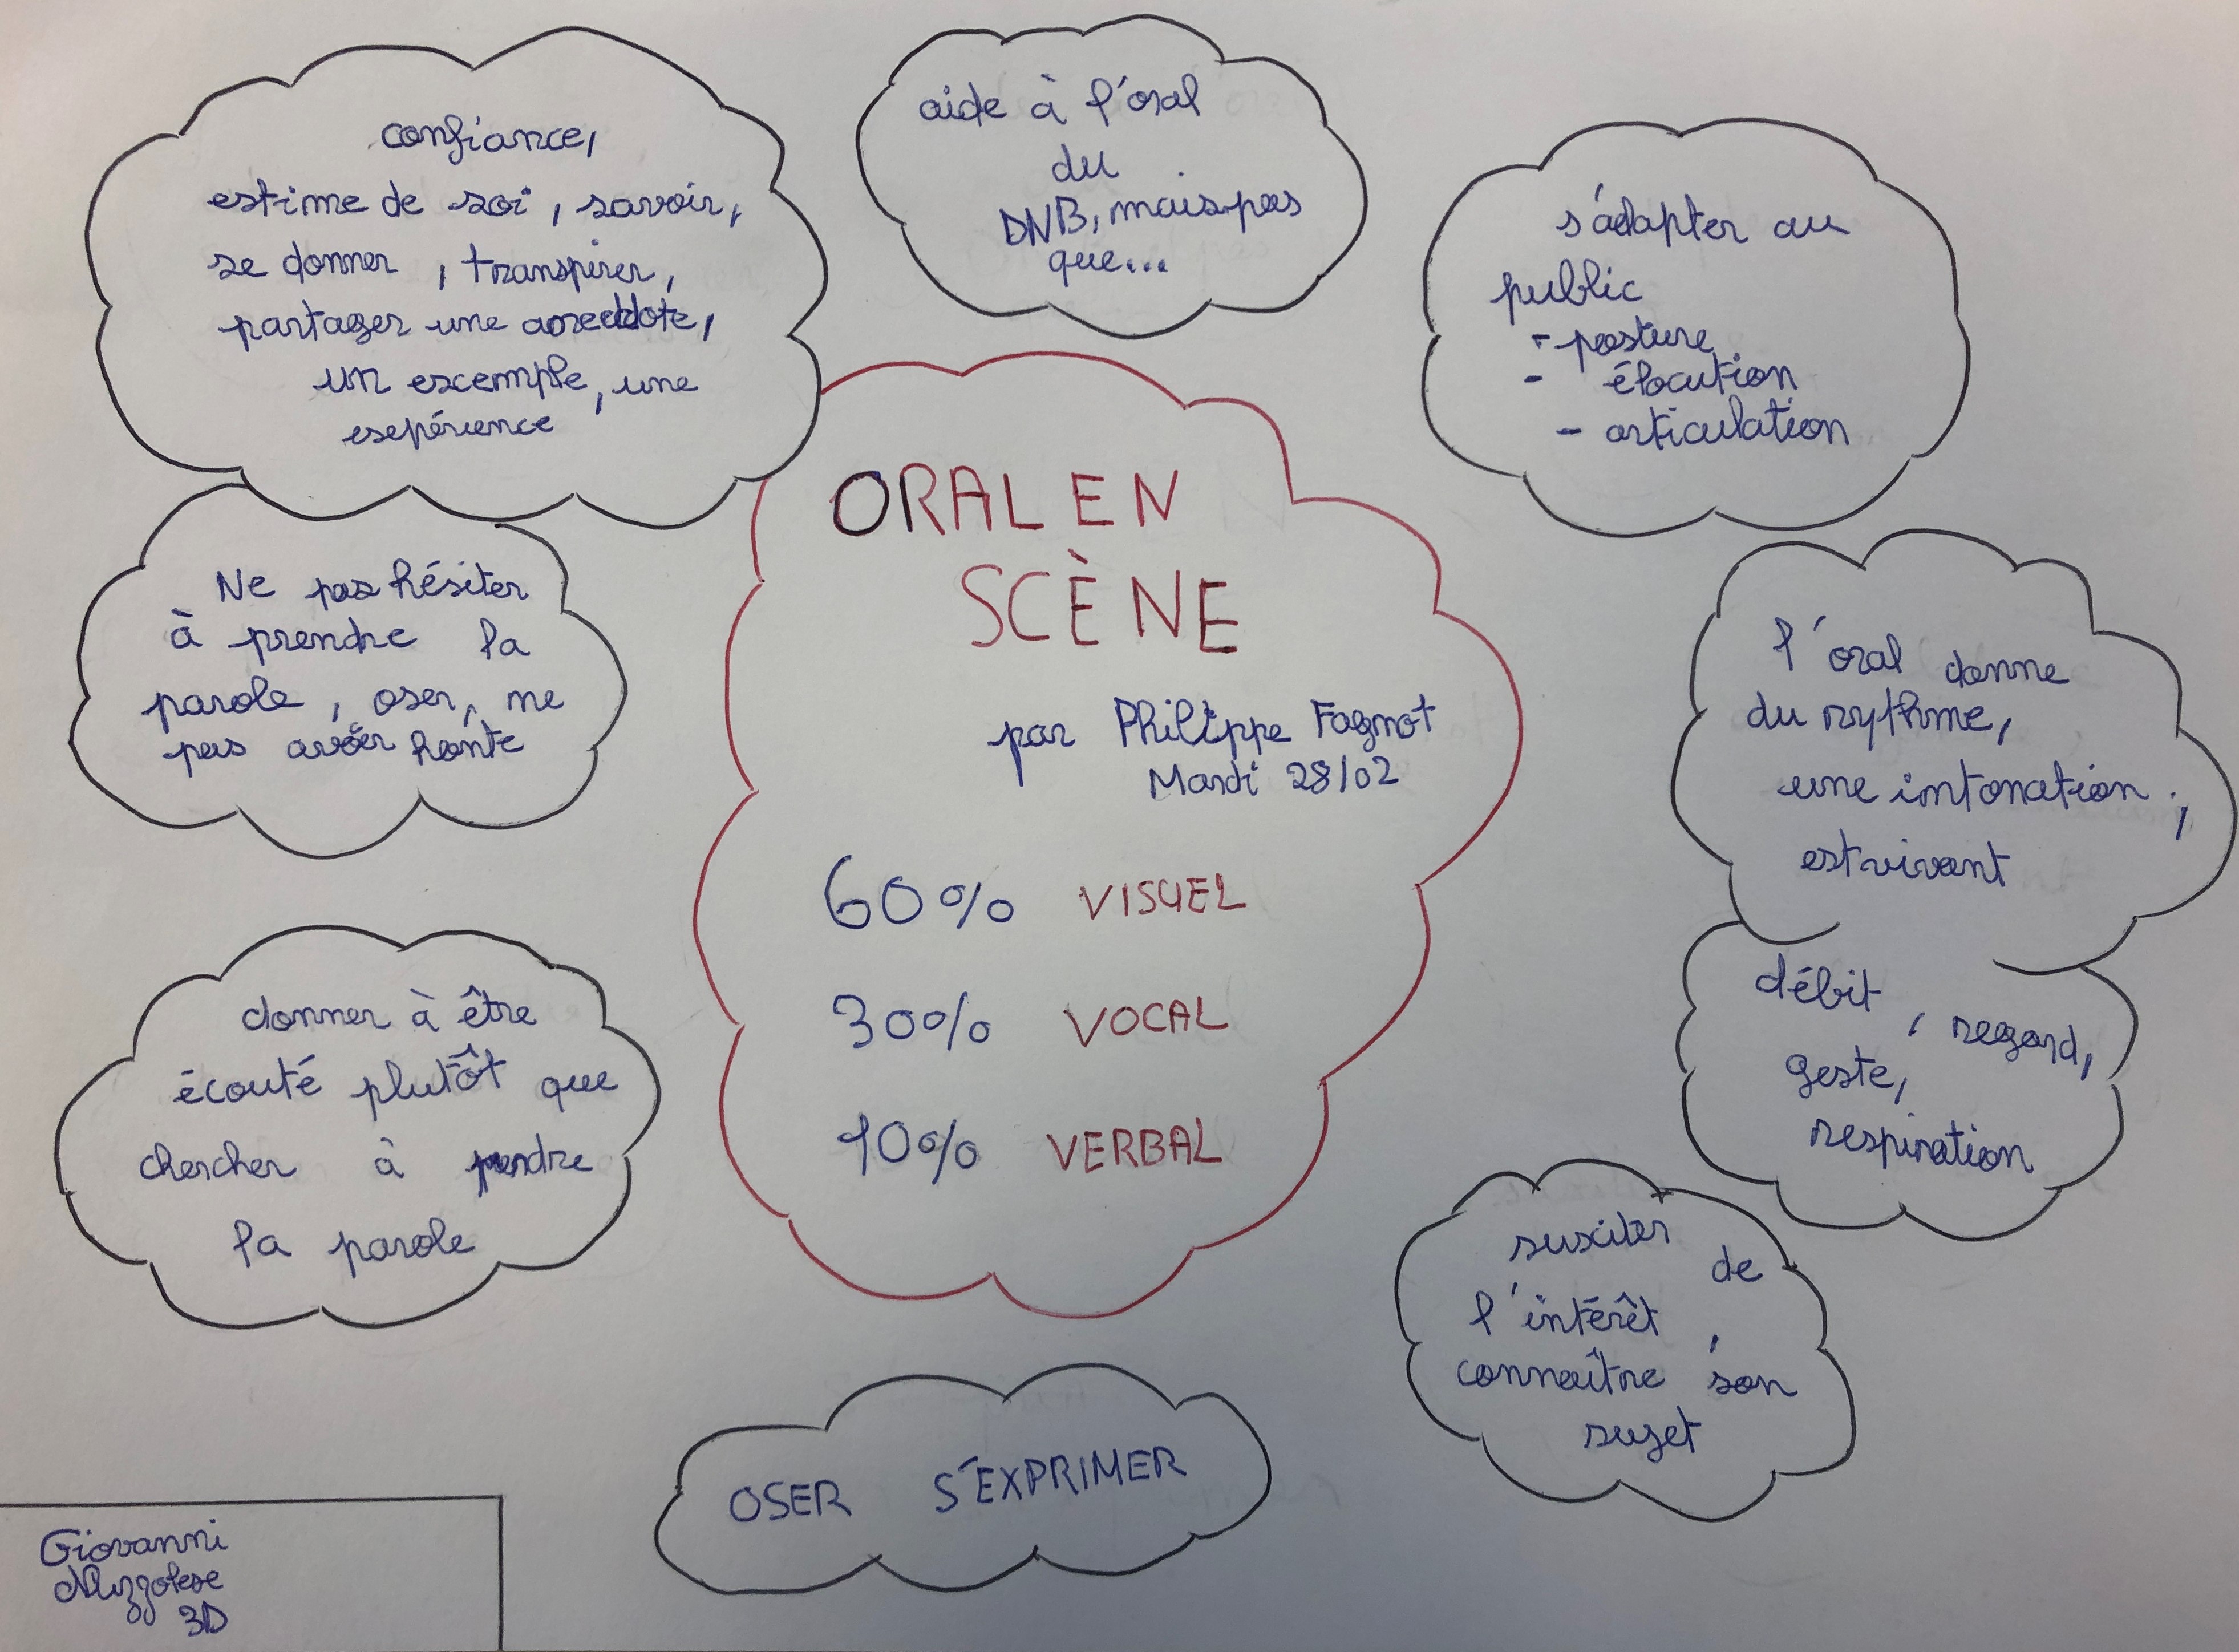 confiance,
estime de soi, savoir,
se donner, transpirer,
partager une anecdote,
un exemple, une
expérience
aide à l'oral
du
DNB, mais pas
que...
s'adapter au
public
- posture
- élocution
- articulation
ORAL EN
SCÈNE
par Philippe Fagnot
Mardi 28/02
60% VISUEL
30% VOCAL
10% VERBAL
Ne pas hésiter
à prendre la
parole, oser, ne
pas avoir honte
l'oral donne
du rythme,
une intonation;
est vivant
donner à être
écouté plutôt que
chercher à prendre
la parole
débit, regard,
geste,
respiration
susciter de
l'intérêt,
connaître son
sujet
OSER S'EXPRIMER
Giovanni
3D